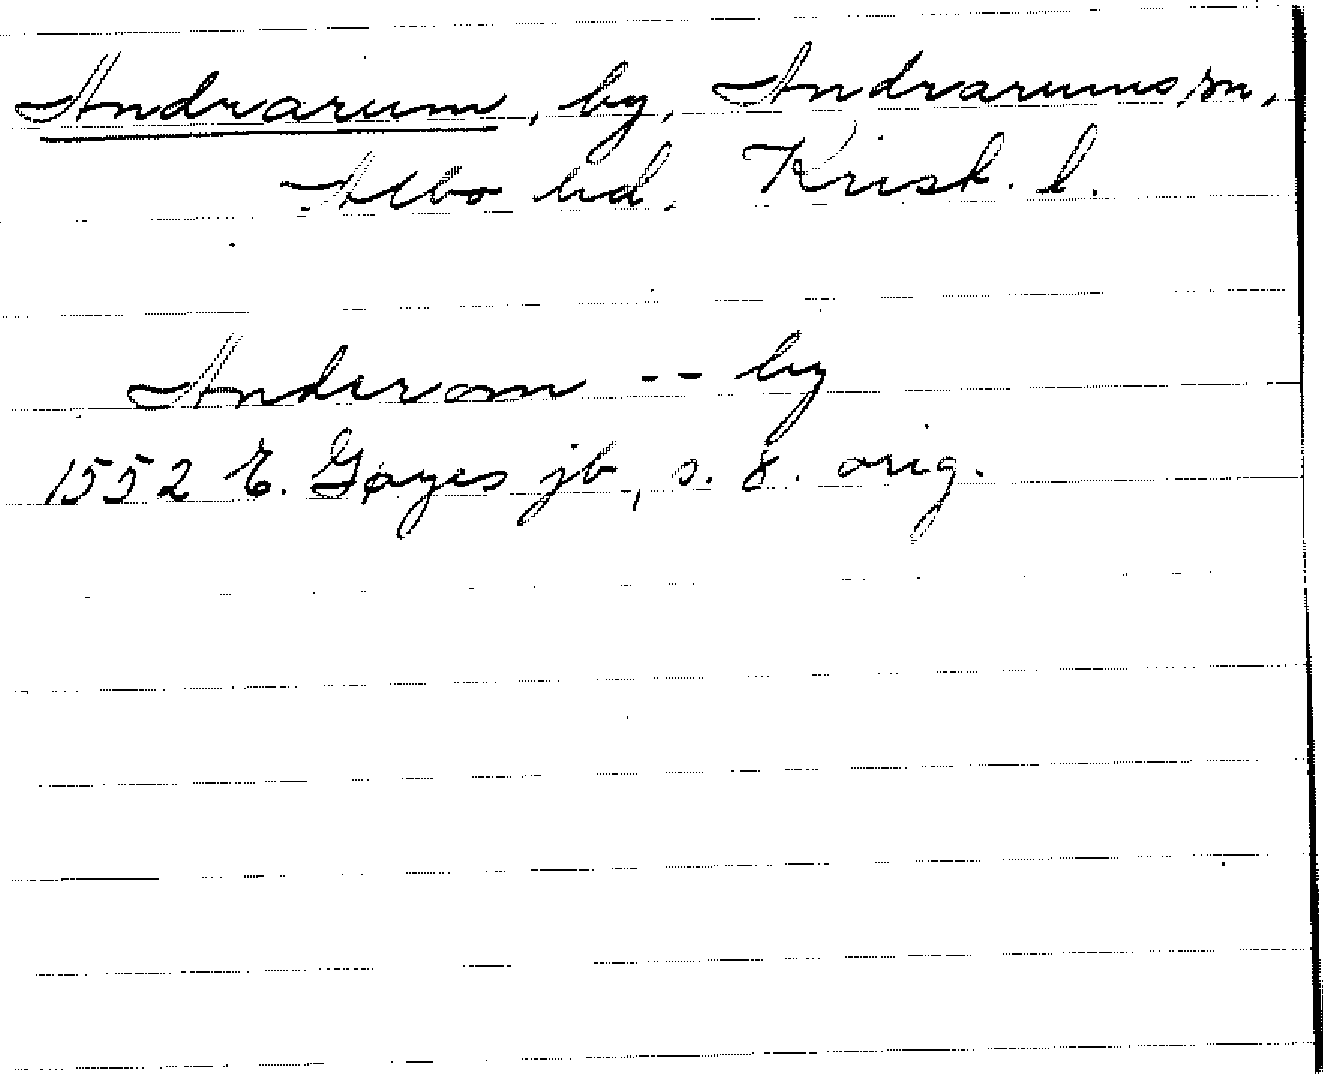 Andrarum, by, Andrarums sn,
Albo hd. Krist. l.
Anderom -- by
1552 E. Gøyes jb, s. 8. orig.